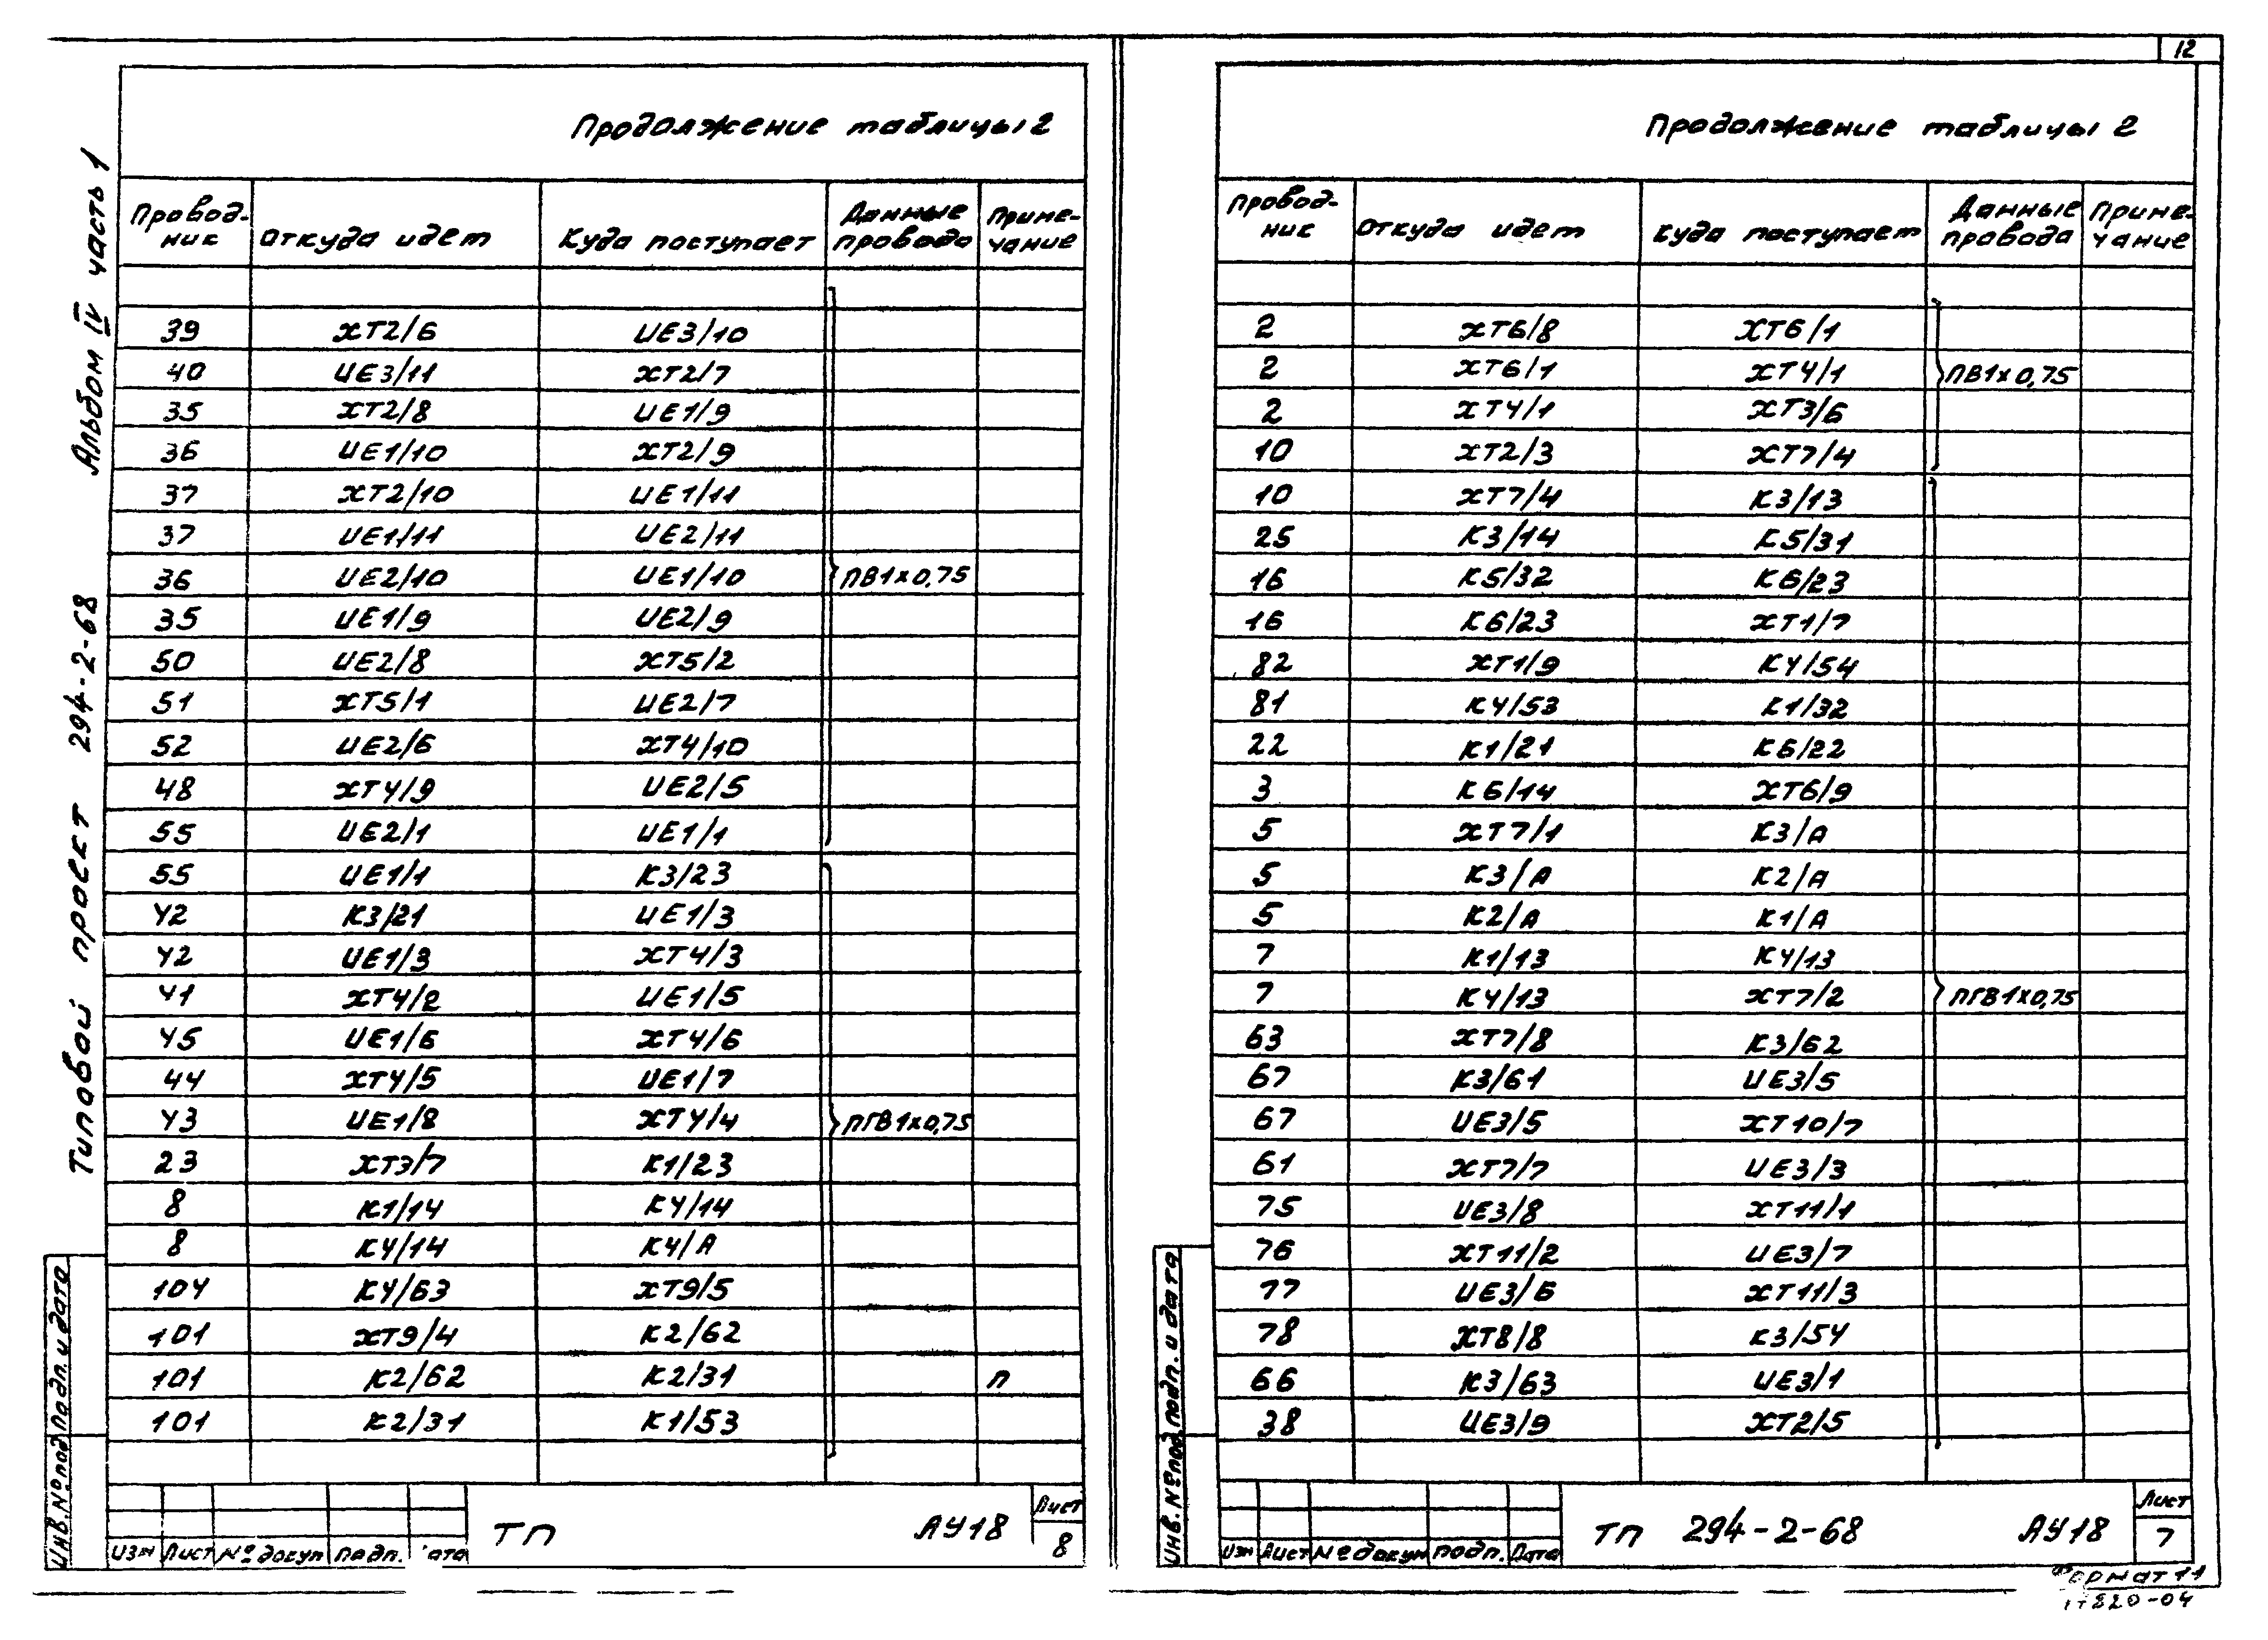 12
Альбом IV часть 1
Типовой проект 294-2-68
Продолжение таблицы 2
Провод-ник Откуда идет Куда поступает Данные провода Приме-чание
39 ХТ2/6 UE3/10
40 UE3/11 ХТ2/7
35 ХТ2/8 UE1/9
36 UE1/10 ХТ2/9
37 ХТ2/10 UE1/11
37 UE1/11 UE2/11
36 UE2/10 UE1/10 ПВ1х0,75
35 UE1/9 UE2/9
50 UE2/8 ХТ5/2
51 ХТ5/1 UE2/7
52 UE2/6 ХТ4/10
48 ХТ4/9 UE2/5
55 UE2/1 UE1/1
55 UE1/1 К3/23
42 К3/21 UE1/3
42 UE1/3 ХТ4/3
41 ХТ4/2 UE1/5
45 UE1/6 ХТ4/6
44 ХТ4/5 UE1/7
43 UE1/8 ХТ4/4 ПГВ1х0,75
23 ХТ3/7 К1/23
8 К1/14 К4/14
8 К4/14 К4/А
104 К4/63 ХТ9/5
101 ХТ9/4 К2/62
101 К2/62 К2/31 п
101 К2/31 К1/53
Инв.№подл. Подп. и дата
Изм Лист №докум Подп. ата
ТП АУ18
Лист
8
Продолжение таблицы 2
Провод-ник Откуда идет Куда поступает Данные провода Приме-чание
2 ХТ6/8 ХТ6/1
2 ХТ6/1 ХТ4/1 ПВ1х0,75
2 ХТ4/1 ХТ3/6
10 ХТ2/3 ХТ7/4
10 ХТ7/4 К3/13
25 К3/14 К5/31
16 К5/32 К6/23
16 К6/23 ХТ1/7
82 ХТ1/9 К4/54
81 К4/53 К1/32
22 К1/21 К6/22
3 К6/14 ХТ6/9
5 ХТ7/1 К3/А
5 К3/А К2/А
5 К2/А К1/А
7 К1/13 К4/13
7 К4/13 ХТ7/2 ПГВ1х0,75
63 ХТ7/8 К3/62
67 К3/61 UE3/5
67 UE3/5 ХТ10/7
61 ХТ7/7 UE3/3
75 UE3/8 ХТ11/1
76 ХТ11/2 UE3/7
77 UE3/6 ХТ11/3
78 ХТ8/8 К3/54
66 К3/63 UE3/1
38 UE3/9 ХТ2/5
Инв.№подл. Подп. и дата
Изм Лист №докум Подп. Дата
ТП 294-2-68 АУ18
Лист
7
Формат 11
17820-04